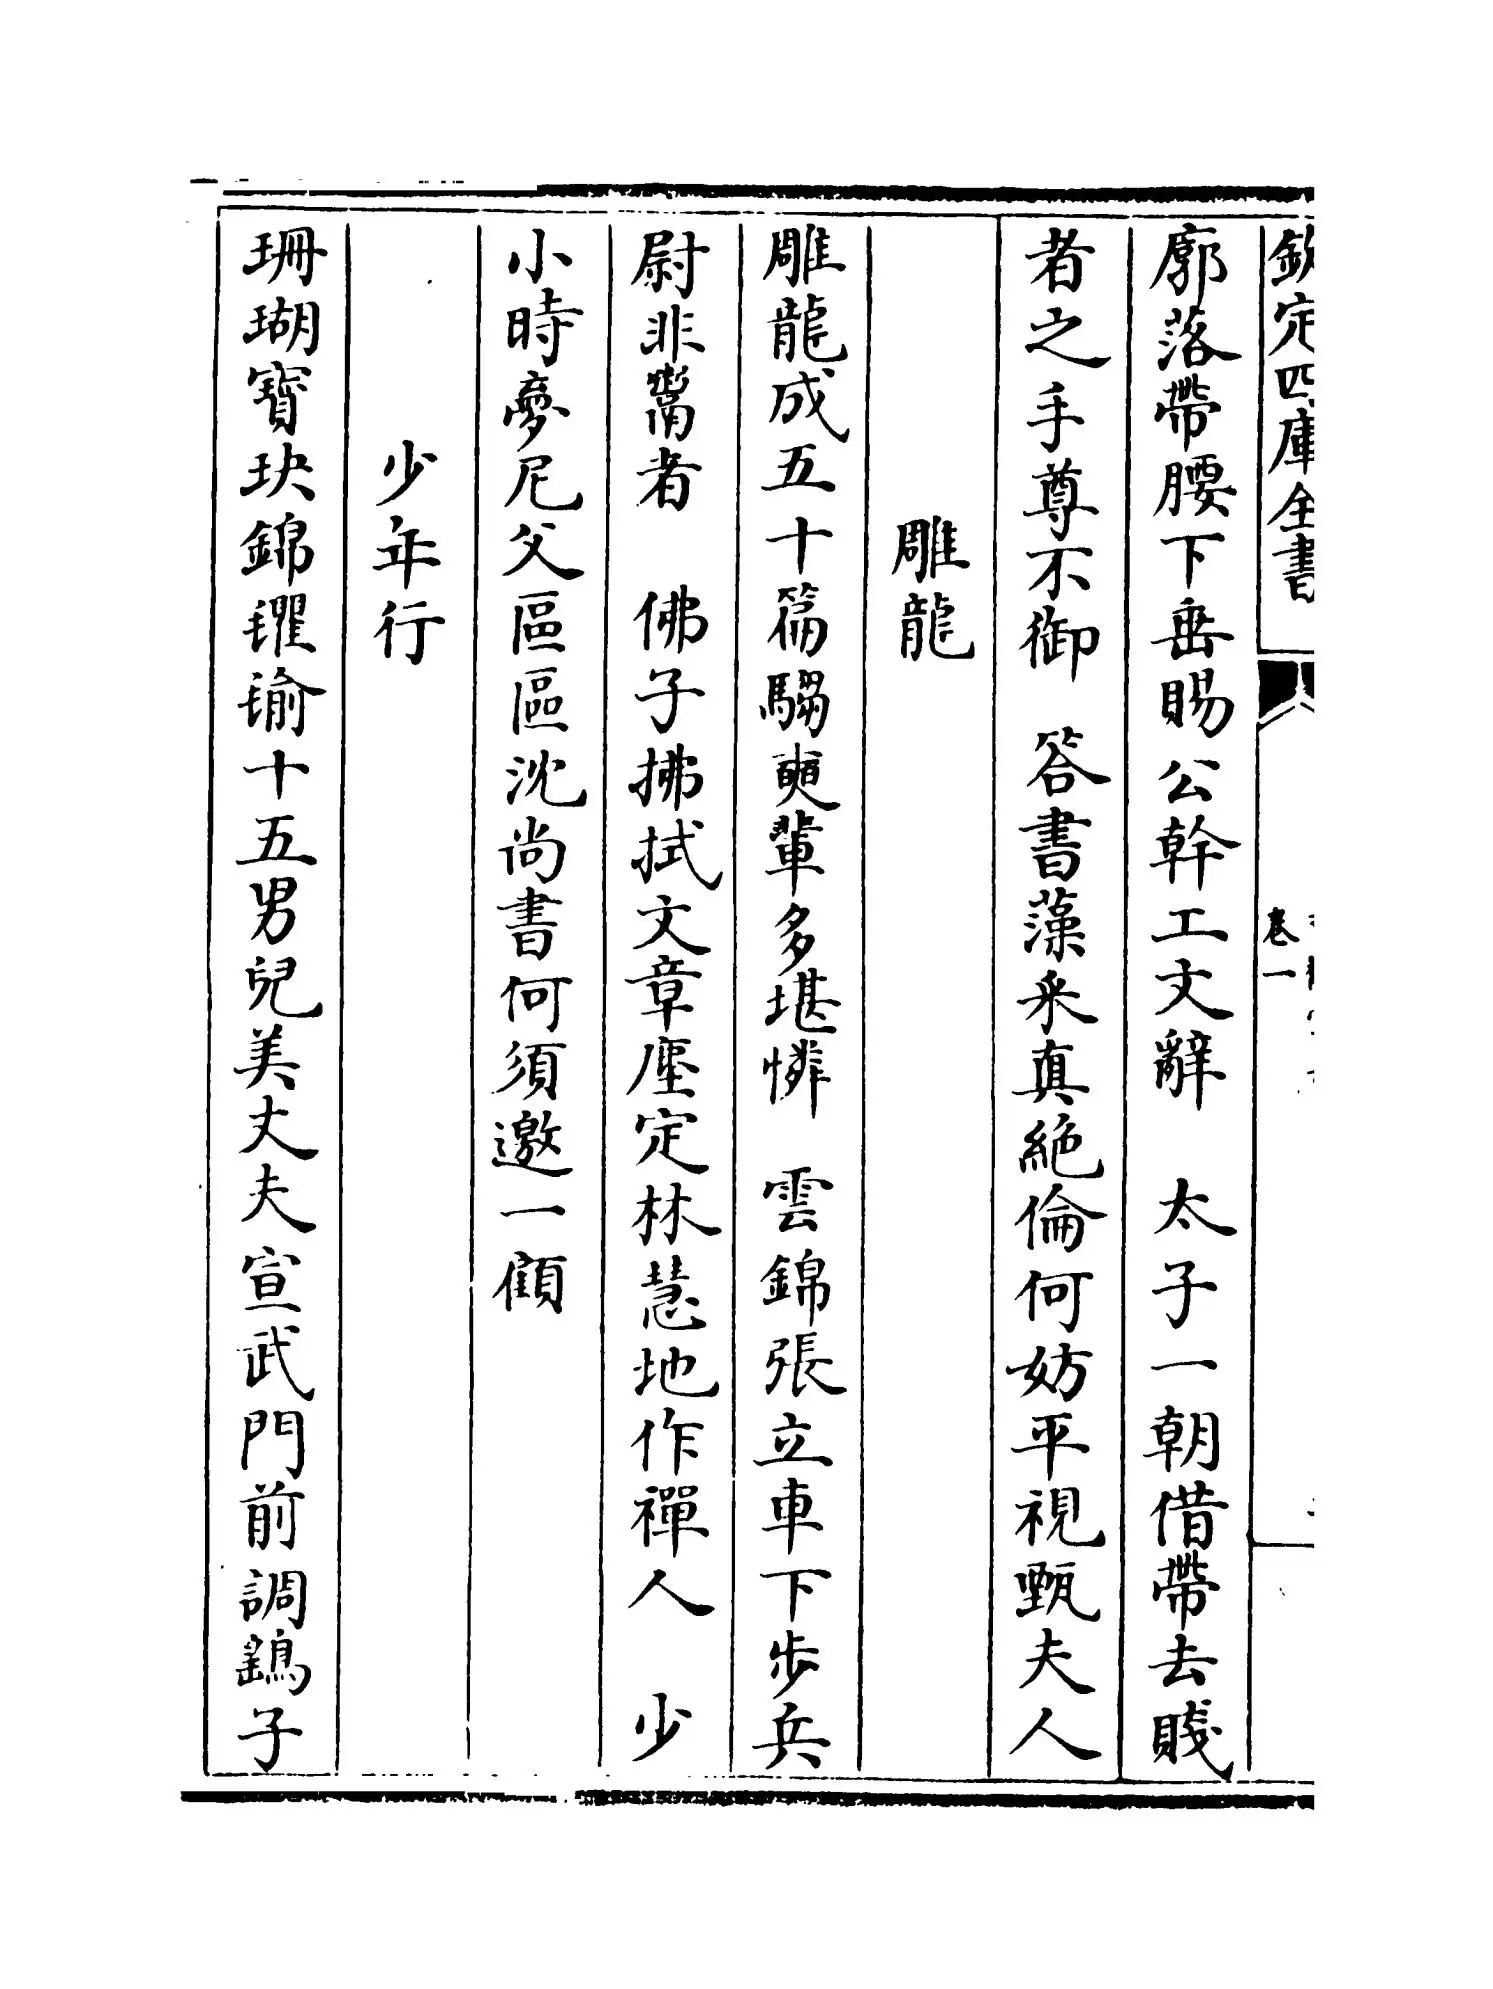 欽定四庫全書
卷一
廓落帶腰下垂賜公幹工文辭　太子一朝借帶去賤
者之手尊不御　答書藻采真絶倫何妨平視甄夫人
雕龍
雕龍成五十篇騶奭輩多堪憐　雲錦張立車下步兵
尉非鬻者　佛子拂拭文章塵定林慧地作禪人　少
小時夢尼父區區沈尚書何須邀一顧
少年行
珊瑚寶玦錦䦆瑜十五男兒美丈夫宣武門前調鷂子